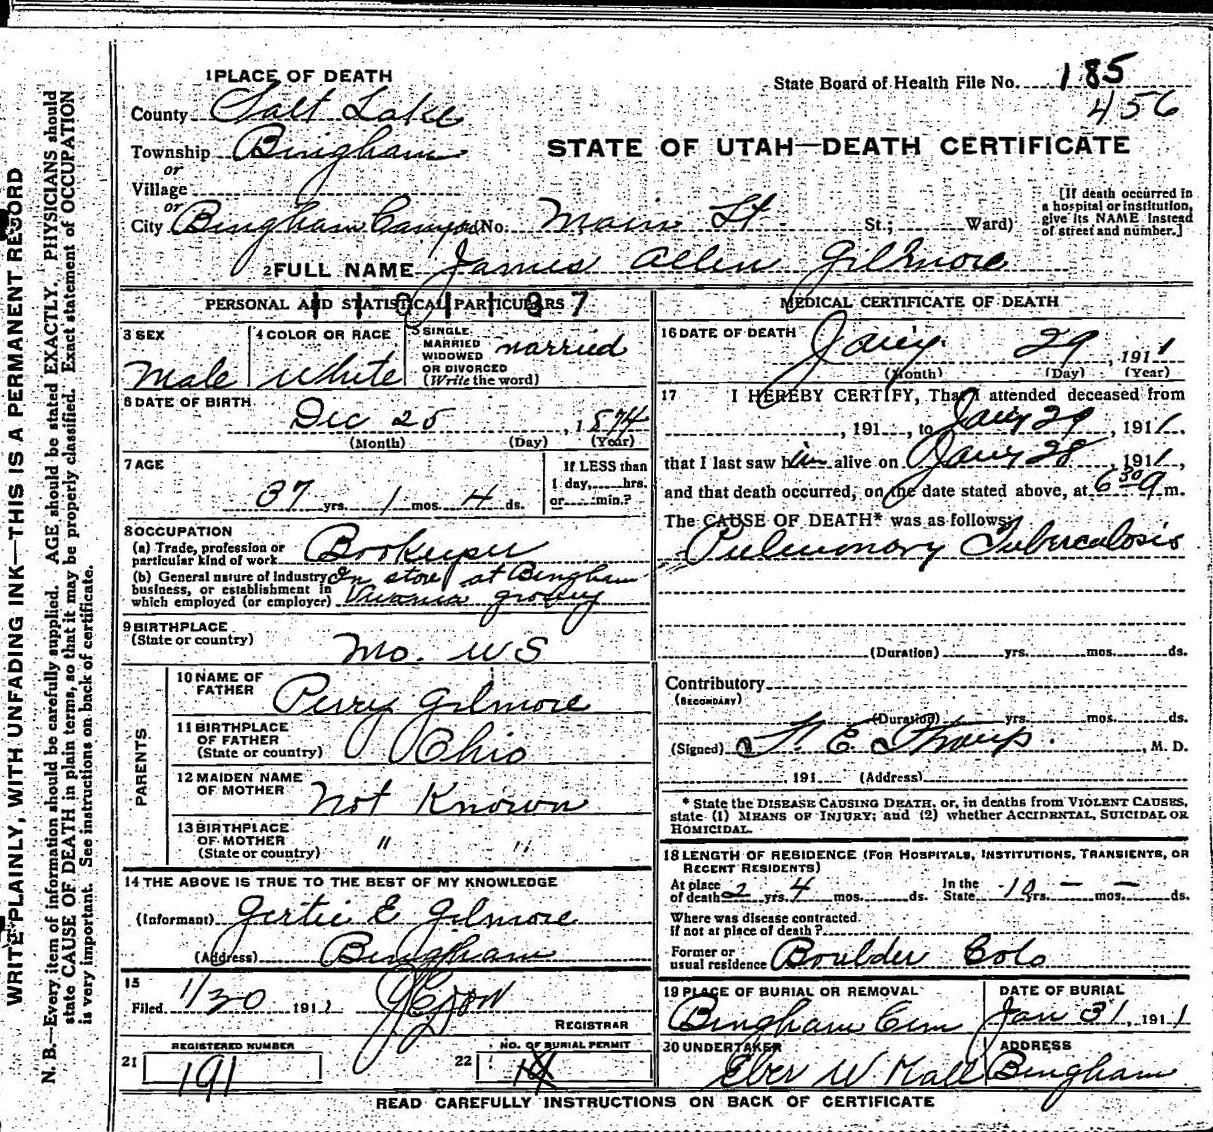 1 PLACE OF DEATH
State Board of Health File No. 185
456
County Salt Lake
Township Bingham
or
Village
or
City Bingham Canyon (No. Main St St.; Ward)
[If death occurred in a hospital or institution, give its NAME instead of street and number.]
STATE OF UTAH—DEATH CERTIFICATE
2 FULL NAME James Allen Gilmore
PERSONAL AND STATISTICAL PARTICULARS
3 SEX Male
4 COLOR OR RACE White
5 SINGLE MARRIED WIDOWED OR DIVORCED (Write the word) married
6 DATE OF BIRTH Dec 25, 1874
(Month) (Day) (Year)
7 AGE 37 yrs. 1 mos. 4 ds.
If LESS than 1 day, hrs. or min.?
8 OCCUPATION
(a) Trade, profession or particular kind of work Bookeeper
(b) General nature of Industry, business, or establishment in which employed (or employer) In store at Bingham grocery
9 BIRTHPLACE (State or country) Mo. US
PARENTS
10 NAME OF FATHER Perry Gilmore
11 BIRTHPLACE OF FATHER (State or country) Ohio
12 MAIDEN NAME OF MOTHER Not Known
13 BIRTHPLACE OF MOTHER (State or country) " "
14 THE ABOVE IS TRUE TO THE BEST OF MY KNOWLEDGE
(Informant) Gertie E Gilmore
(Address) Bingham
15
Filed 1/30 1911
REGISTRAR
21 REGISTERED NUMBER 191
22 NO. OF BURIAL PERMIT
MEDICAL CERTIFICATE OF DEATH
16 DATE OF DEATH Jany. 29, 1911
(Month) (Day) (Year)
17 I HEREBY CERTIFY, That I attended deceased from
, 191 , to Jany 29, 1911,
that I last saw him alive on Jany 28, 1911,
and that death occurred, on the date stated above, at 6 30 a m.
The CAUSE OF DEATH* was as follows:
Pulmonary Tuberculosis
(Duration) yrs. mos. ds.
Contributory
(SECONDARY)
(Duration) yrs. mos. ds.
(Signed) F. E. Straup. , M. D.
, 191 (Address)
* State the DISEASE CAUSING DEATH, or, in deaths from VIOLENT CAUSES, state (1) MEANS OF INJURY; and (2) whether ACCIDENTAL, SUICIDAL OR HOMICIDAL.
18 LENGTH OF RESIDENCE (FOR HOSPITALS, INSTITUTIONS, TRANSIENTS, OR RECENT RESIDENTS)
At place of death 2 yrs. 4 mos. ds. In the State 10 yrs. — mos. — ds.
Where was disease contracted, if not at place of death?
Former or usual residence Boulder Colo
19 PLACE OF BURIAL OR REMOVAL Bingham Cem
DATE OF BURIAL Jan 31, 1911
20 UNDERTAKER Eber W Hall
ADDRESS Bingham
READ CAREFULLY INSTRUCTIONS ON BACK OF CERTIFICATE
WRITE PLAINLY, WITH UNFADING INK—THIS IS A PERMANENT RECORD
N. B.—Every item of information should be carefully supplied. AGE should be stated EXACTLY. PHYSICIANS should
state CAUSE OF DEATH in plain terms, so that it may be properly classified. Exact statement of OCCUPATION
is very important. See instructions on back of certificate.